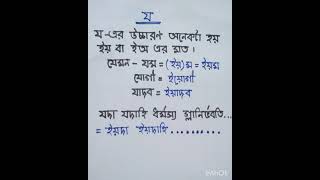 য
য-এর উচ্চারণ অনেকটা ইয়
ইয় বা ইঅ এর মত।
যেমন - যন্ত্র = (ইয়) ন্ত্র = ইয়ন্ত্র
যোগী = ইয়োগী
যাদব = ইয়াদব
যদা যদাহি ধর্মস্য গ্লানির্ভবতি...
= ইয়দা ইয়দাহি ..........